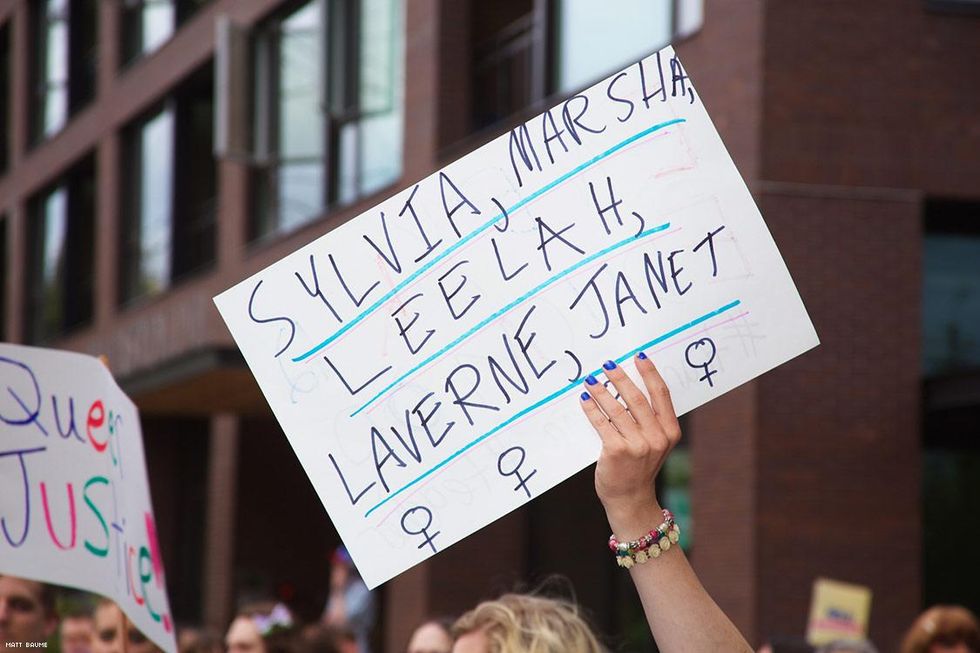 SYLVIA, MARSHA,
LEELAH,
LAVERNE, JANET
Queer
Justice
MATT BAUME